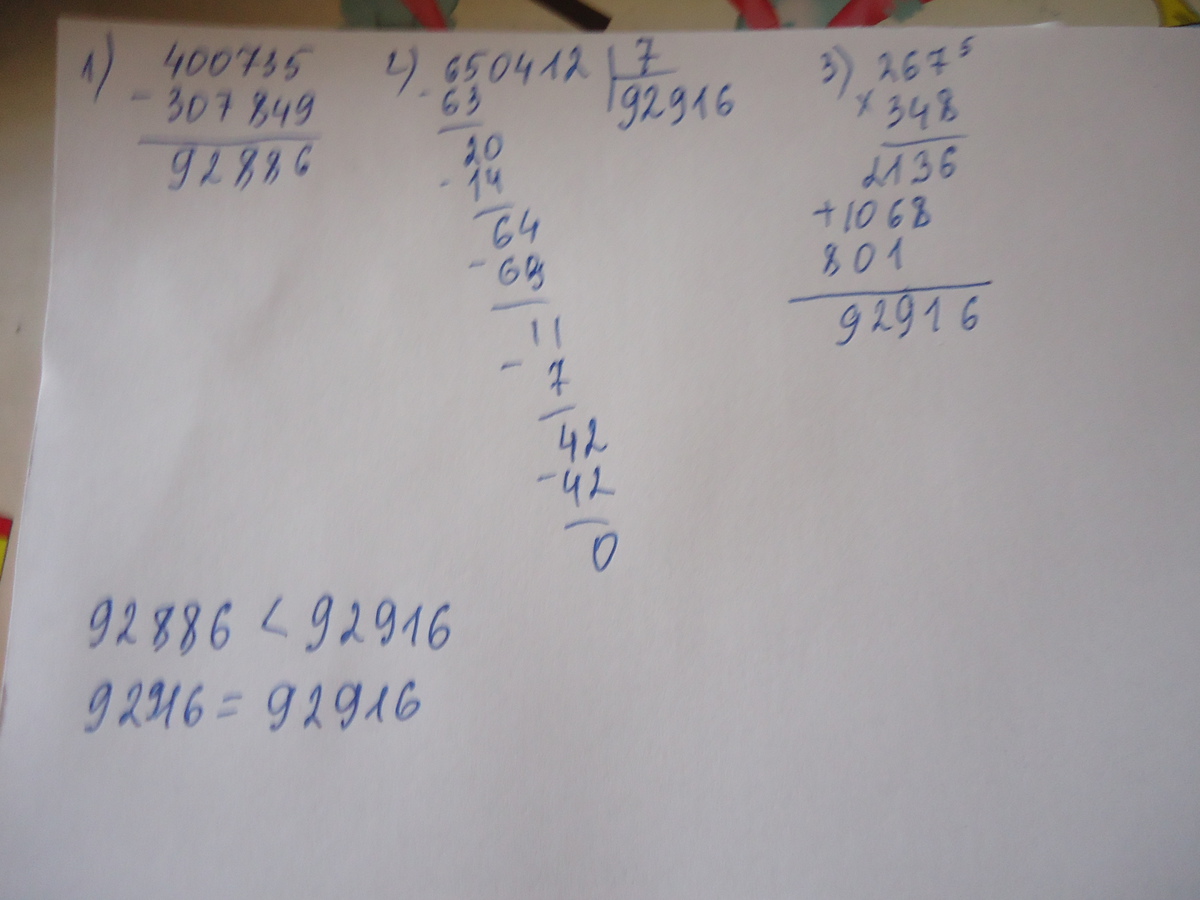 1) 400735
- 307849
92886
2) 650412 | 7
- 63 92916
20
- 14
64
- 63
11
- 7
42
- 42
0
3) 267⁵
× 348
2136
+ 1068
801
92916
92886 < 92916
92916 = 92916